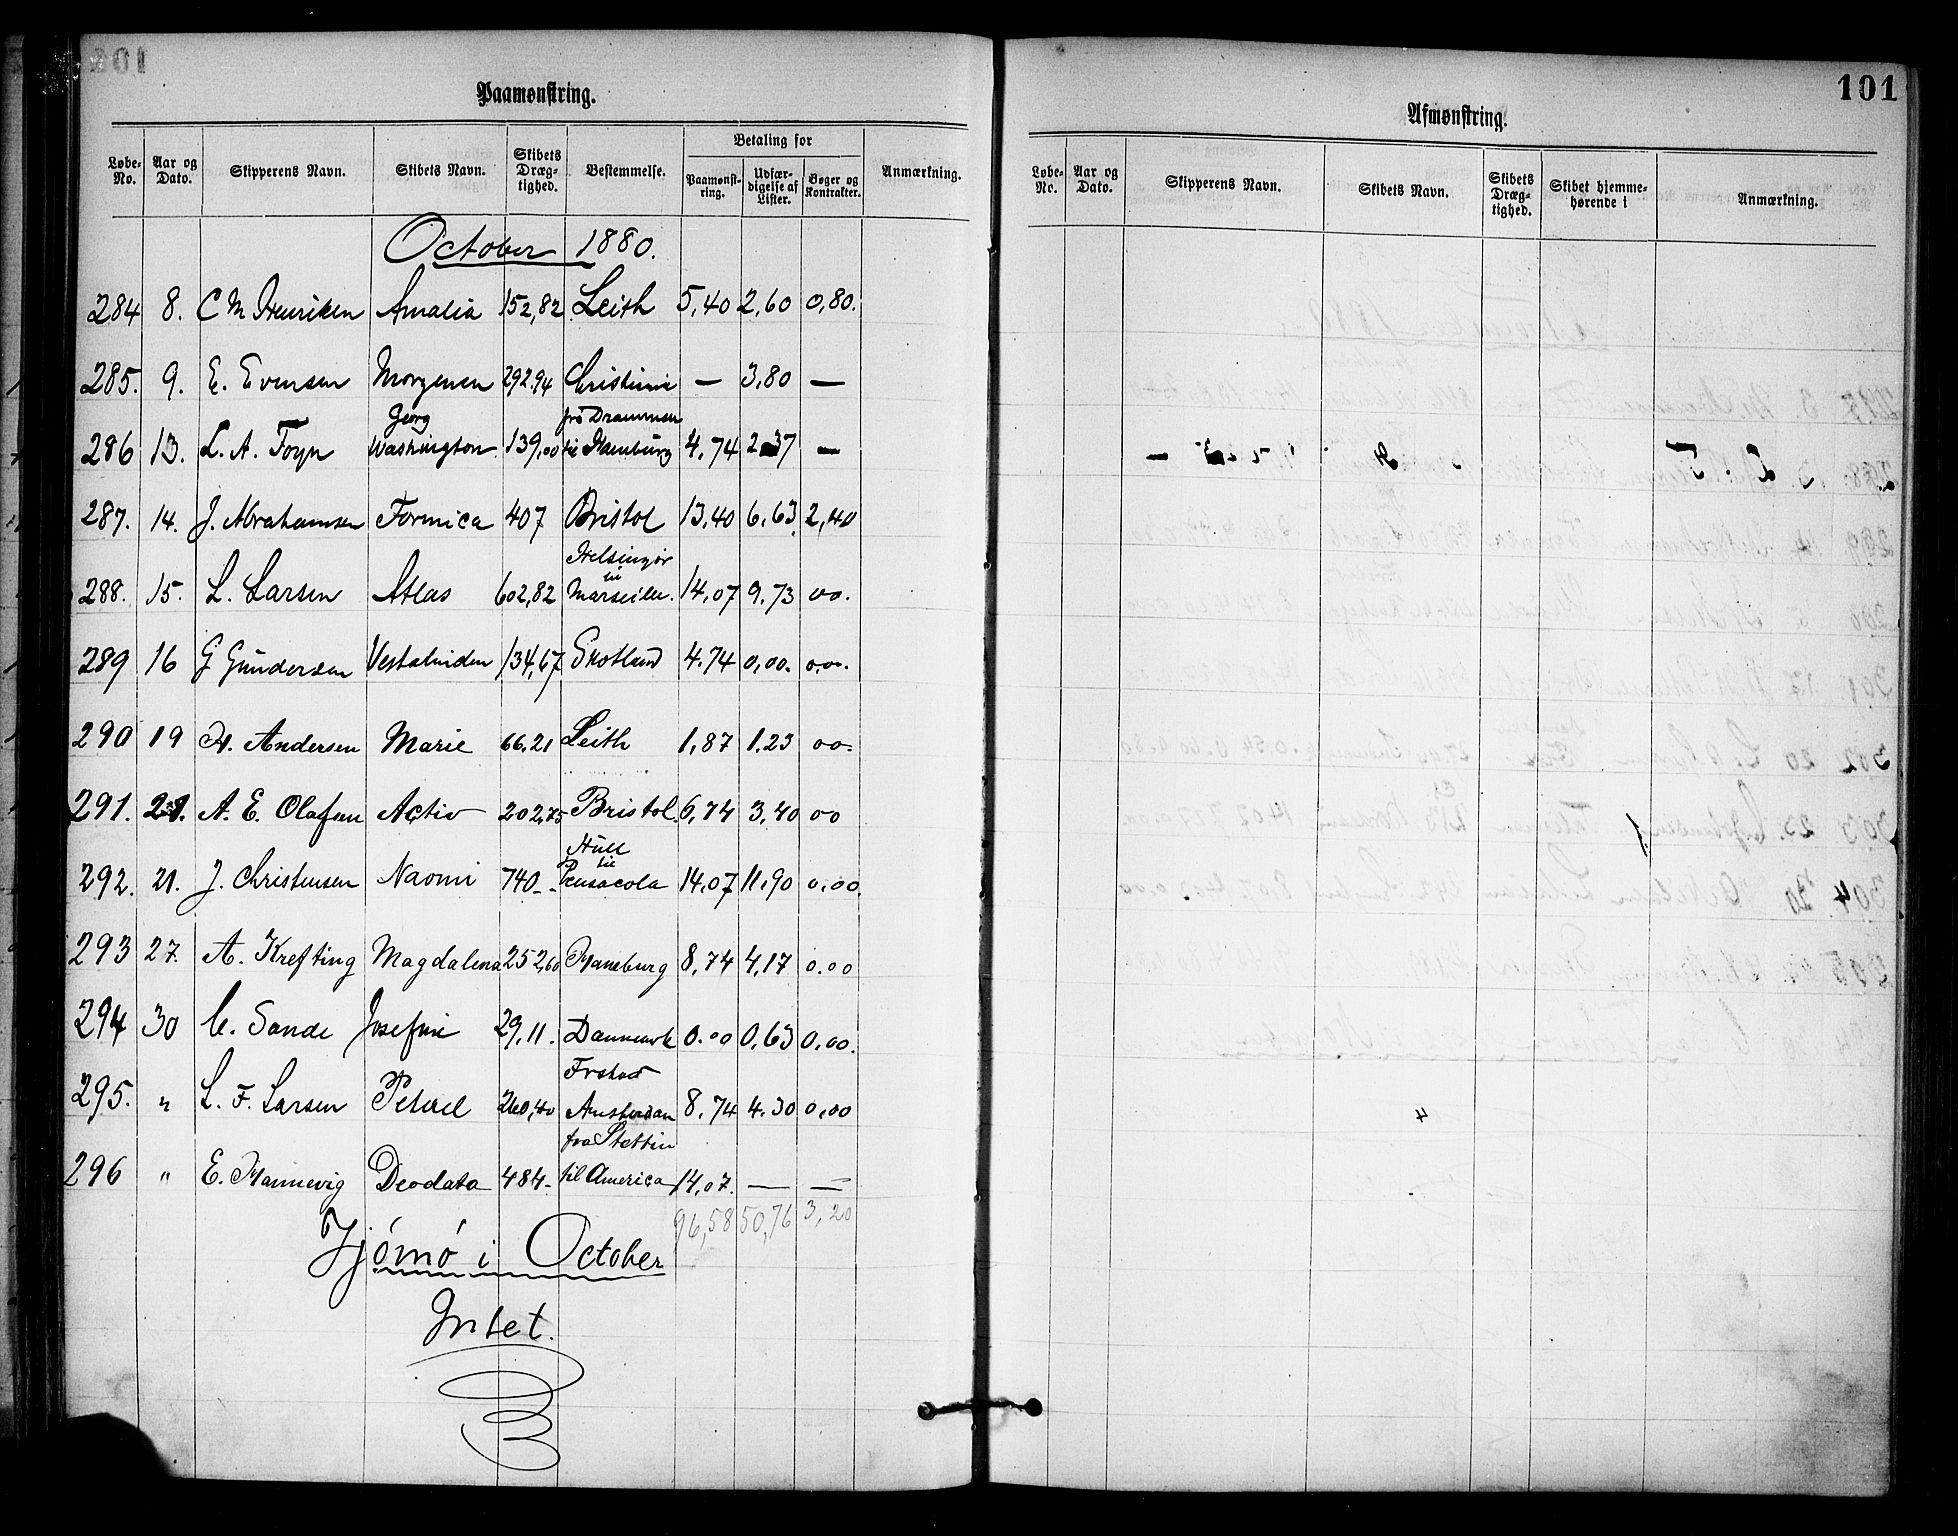 Paamønstring.
Løbe-No. Aar og Dato. Skipperens Navn. Skibets Navn. Skibets Dræg-tighed. Bestemmelse. Betaling for Paamønst-ring. Udfær-digelse af Lister. Bøger og Kontrakter. Anmærkning.
October 1880.
284 8. C M Henriksen Amalia 152,82 Leith 5,40 2,60 0,80.
285. 9. E. Evensen Morgenen 292.94 Christiania — 3,80 —
Georg fra Drammen
286 13. L. A. Foyn Washington 139,00 til Hamburg 4,74 2 37 —
287. 14. J. Abrahamsen Formica 407 Bristol 13,40 6,63 2,40
Helsingør
til
288. 15. L. Larsen Atlas 602,82 Marseille. 14,07 9,73 00.
289 16 G Gundersen Vestalinden 134,67 Skotland 4.74 0,00. 0.00.
290 19 H. Andersen Marie 66.21 Leith 1,87 1.23 00.
291. 21. A. E. Olafsen Activ 202,75 Bristol. 6,74 3,40 00
Hull
til
292. 21. J. Christensen Naomi 740 - Pensacola 14,07 11,90 0,00.
293 27. A. Krefting Magdalena 252,60 8,74 4,17 0.00
294 30 C. Sande Josefine 29,11. Danmark 0.00 0,63 0,00.
295. " L. F. Larsen Petrel 260,40 Amsterdam 8,74 4.30 0,00
fra Stettin
296 " E. Mannevig Deodata 484- til America 14,07. — —
96,58 50,76 3,20
Tjømø i October
Intet.
101
Afmønstring.
Løbe-No. Aar og Dato. Skipperens Navn. Skibets Navn. Skibets Dræg-tighed. Skibet hjemme-hørende i Anmærkning.